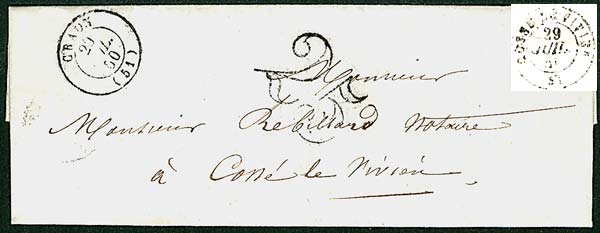 CRAON
29
JUIL.
50
(51)
25
COSSÉ-LE-VIVIEN
29
JUIL.
Monsieur
Monsieur Rebillard Notaire
à Cossé le Vivien,